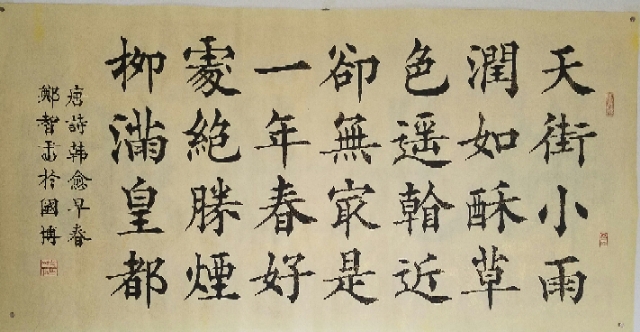 天街小雨
潤如酥草
色遙看近
卻無最是
一年春好
處絕勝煙
柳滿皇都
唐詩韩愈早春
鄭智於國博